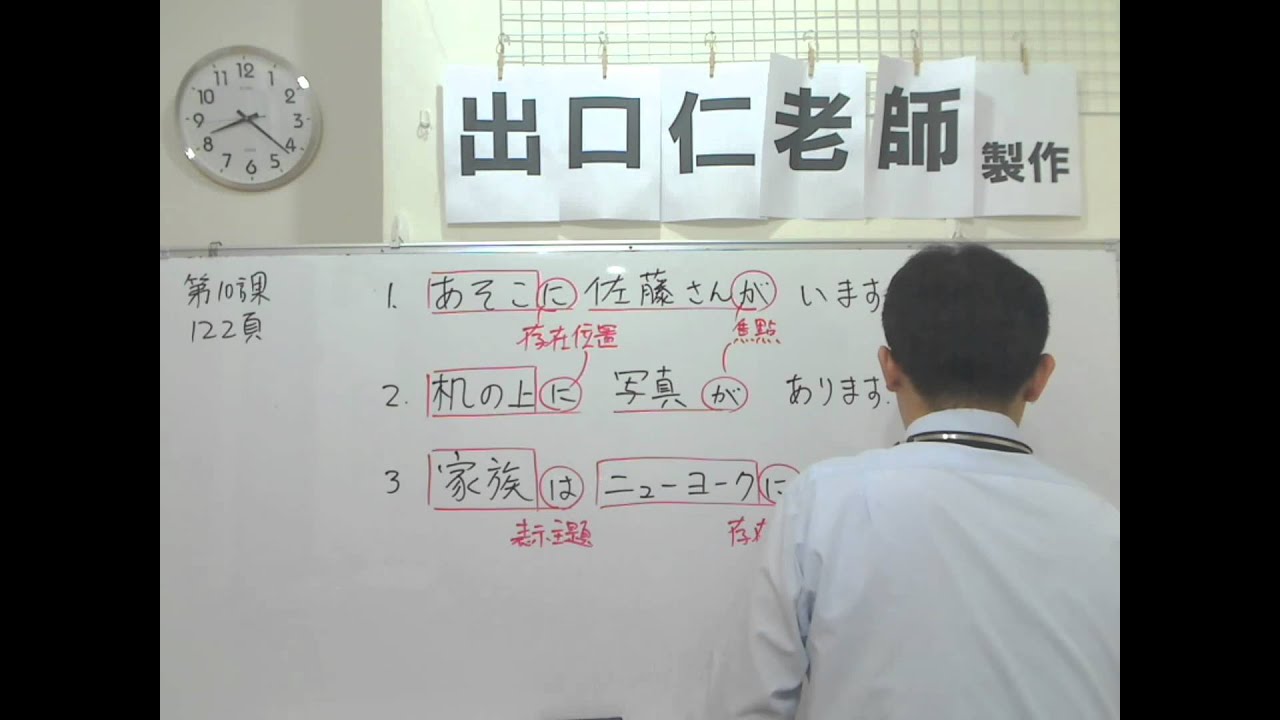 12
11
10
8
7
6
5
4
3
2
出口仁老師 製作
第10課
122頁
1. あそこに 佐藤さんが います
存在位置 焦點
2. 机の上に 写真が あります.
3 家族は ニューヨークに
表示主題 存